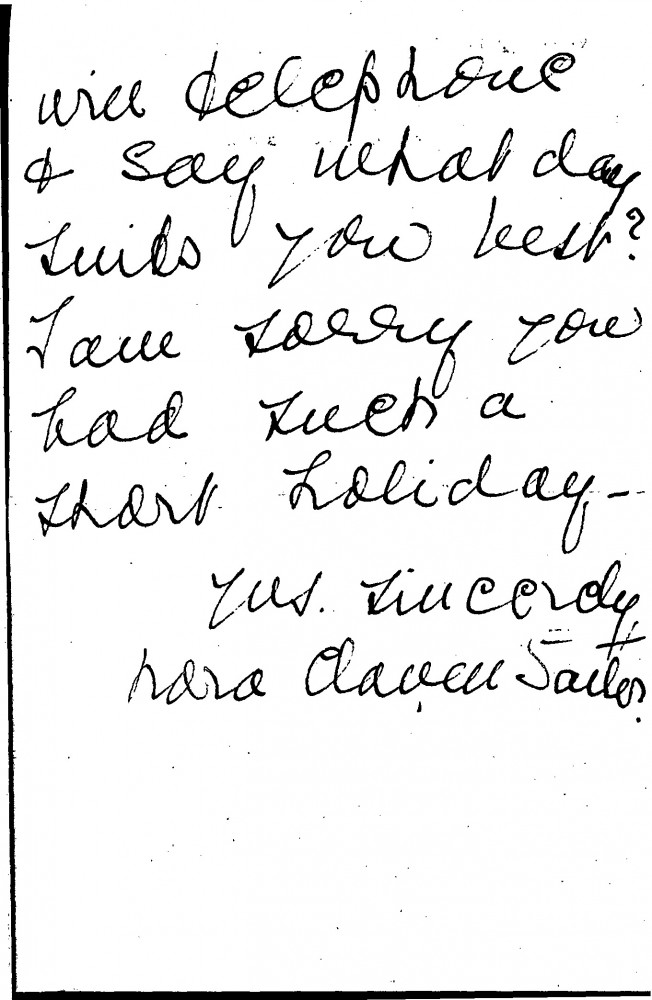 will telephone
& say what day
suits you best?
I am sorry you
had such a
short holiday -
yrs. sincerely
Nora